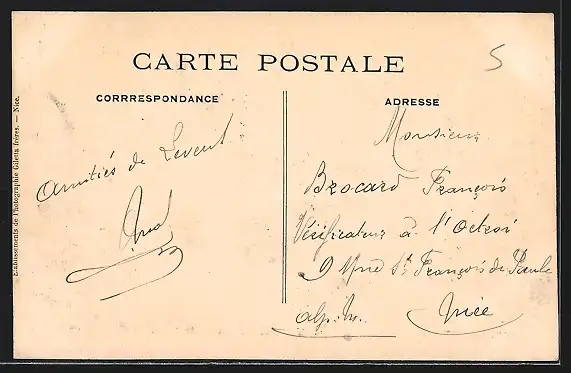 CARTE POSTALE
5
CORRRESPONDANCE
Amitiés de Levens
ADRESSE
Monsieur
Brocard François
Vérificateur à l'Octroi
9 Rue St François de Paule
Alp. M.
Nice
Etablissements de Photographie Giletta frères. — Nice.